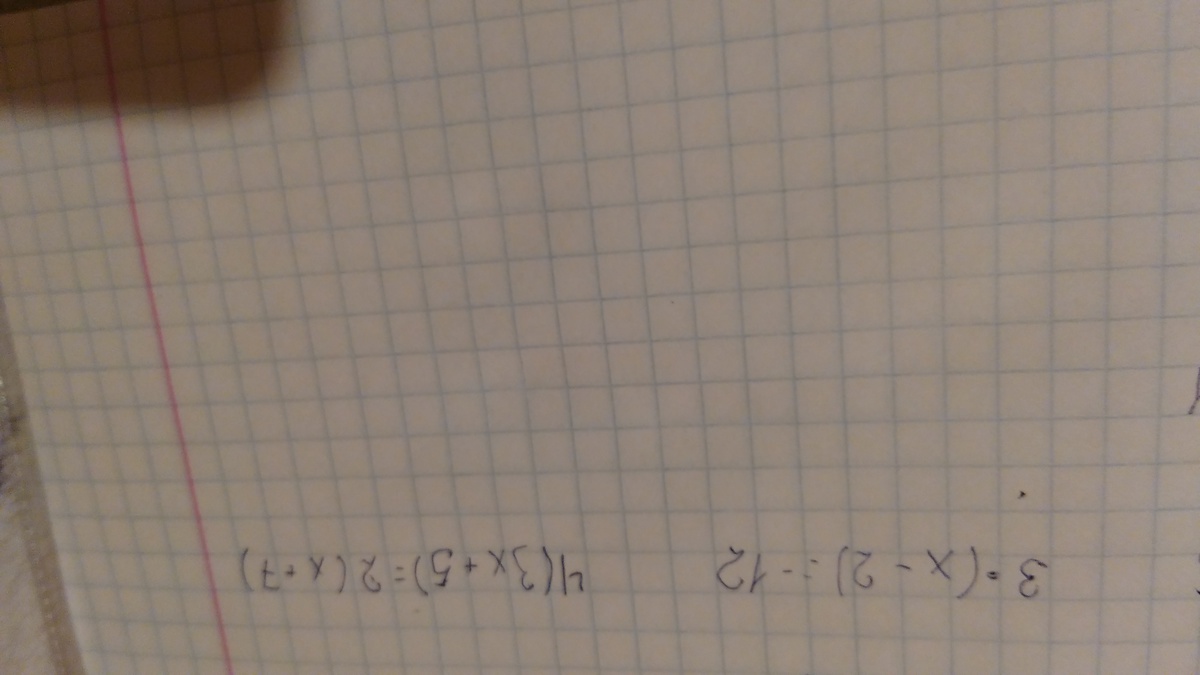 3·(x-2)=-12 4(3x+5)=2(x+7)